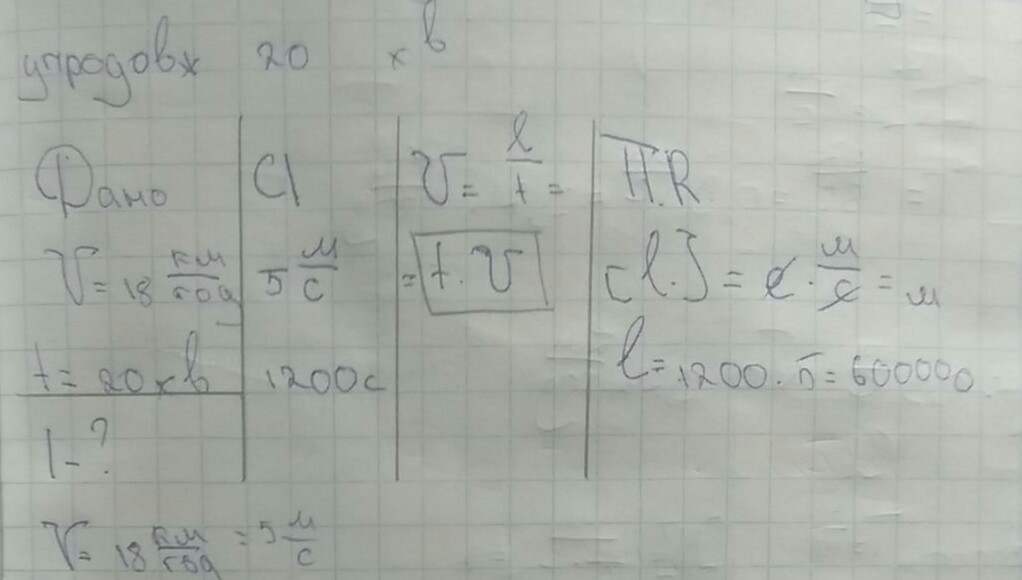 упродовж 20 хв
Дано
V = 18 км/год
t = 20 хв
l - ?
СІ
5 м/с
1200 с
V = l/t =
= t · V
П.R.
[l.] = с · м/с = м
l = 1200 · 5 = 600000
V = 18 км/год = 5 м/с